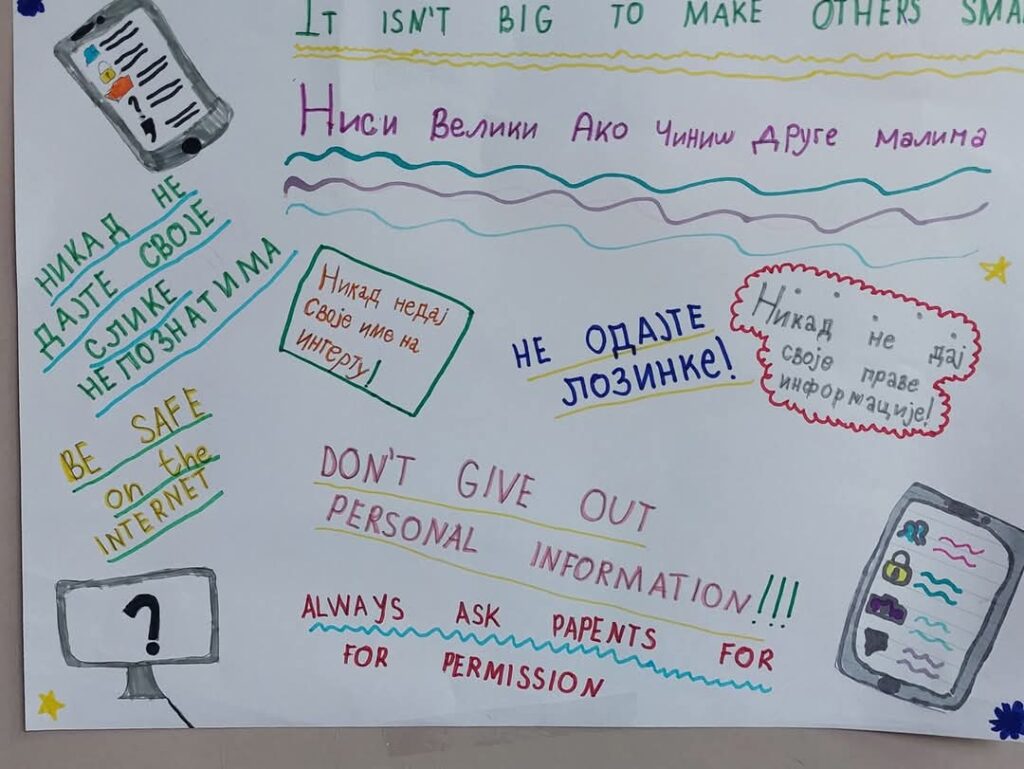 IT ISN'T BIG TO MAKE OTHERS SMA
Ниси Велики Ако Чиниш Друге малима
НИКАД НЕ
ДАЈТЕ СВОЈЕ
СЛИКЕ
НЕПОЗНАТИМА
Никад недај
своје име на
интерту!
НЕ ОДАЈТЕ
ЛОЗИНКЕ!
Никад не дај
своје праве
информације!
BE SAFE
on the
INTERNET
DON'T GIVE OUT
PERSONAL INFORMATION!!!
ALWAYS ASK PAPENTS FOR
FOR PERMISSION
?